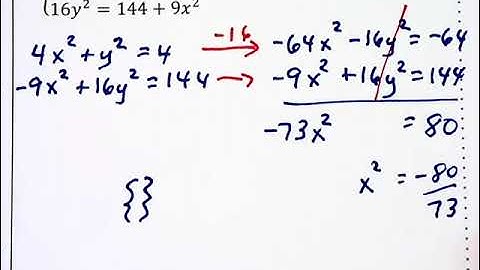 {16y² = 144 + 9x²
4x² + y² = 4 -16→ -64x² - 16y² = -64
-9x² + 16y² = 144 → -9x² + 16y² = 144
-73x² = 80
x² = -80/73
{}